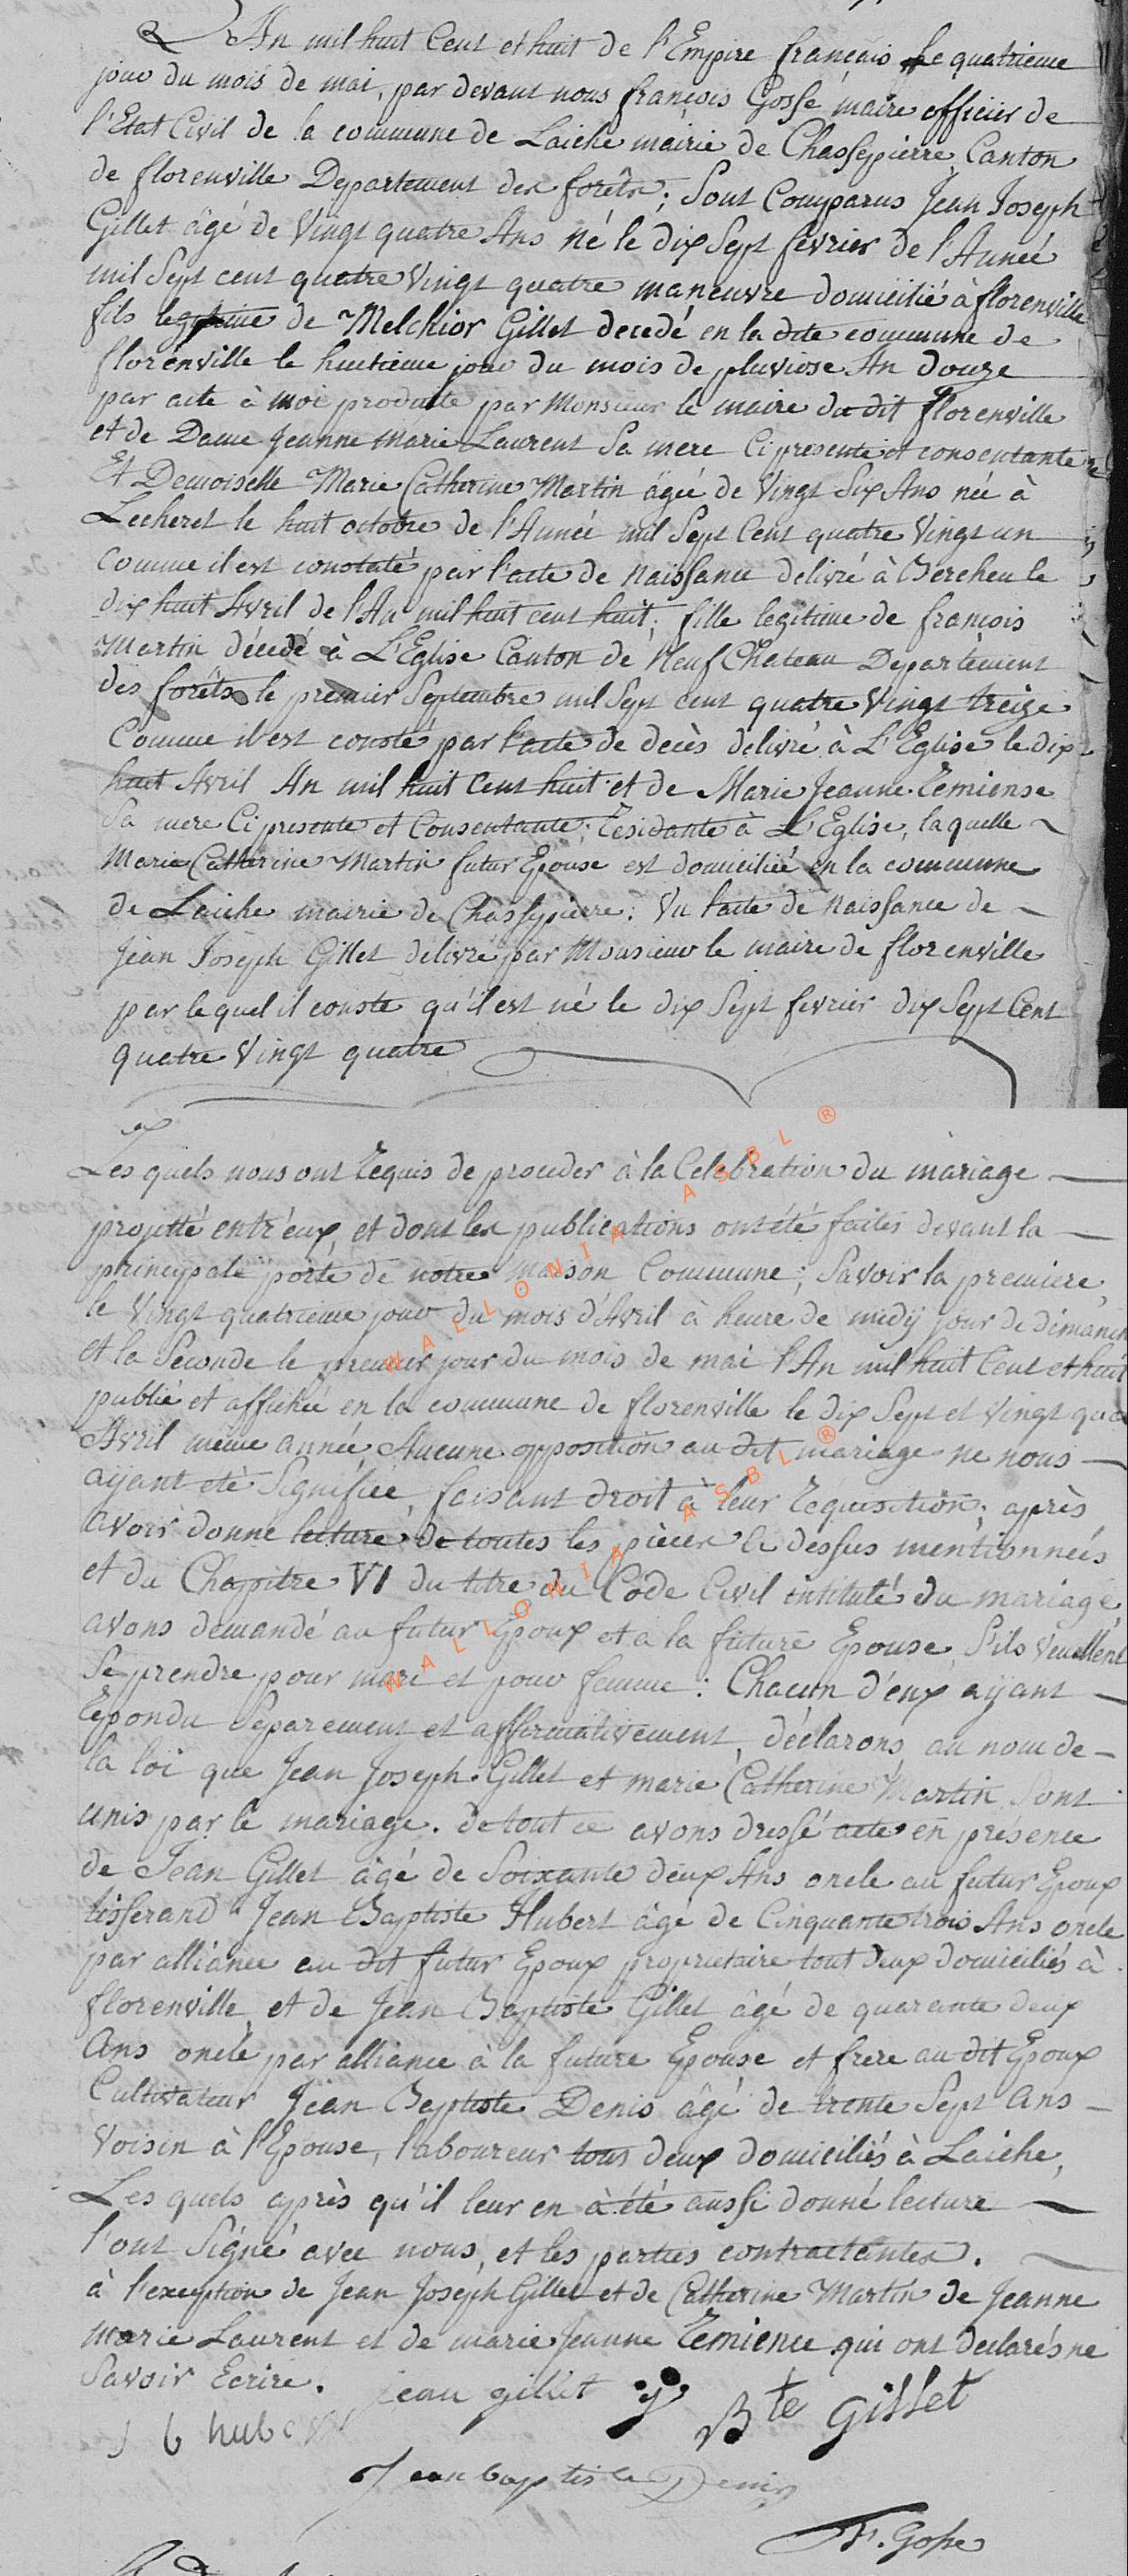 L'An mil huit Cent et huit de l'Empire français le quatrieme
jour du mois de mai, par devant nous françois Gosse maire officier de
l'Etat Civil de la commune de Laiche mairie de Chassepierre Canton
de florenville Departement des forêts; Sont Comparus Jean Joseph
Gillet âgé de Vingt quatre Ans né le dix Sept fevrier de l'Année
mil Sept cent quatre Vingt quatre manœuvre domicilié à florenville
fils legitime de Melchior Gillet decedé en la dite commune de
florenville le huitieme jour du mois de pluviose An douze
par acte à moi produite par Monsieur le maire du dit florenville
et de Dame Jeanne Marie Laurent Sa mere Ci presente et consentante
Et Demoiselle Marie Catherine Martin âgée de Vingt Six Ans née à
Lecheret le huit octobre de l'Année mil Sept Cent quatre Vingt un
Comme il est constaté par l'acte de Naissance delivré à Bercheu le
dix huit Avril de l'An mil huit cent huit; fille legitime de françois
Martin décédé à L'Eglise Canton de NeufChateau Departement
des forêts le premier Septembre mil Sept cent quatre Vingt treize
Comme il est consté par l'acte de decès delivré à L'Eglise le dix
huit Avril An mil huit Cent huit et de Marie Jeanne Remience
Sa mere Ci presente et Consentante; Residante à L'Eglise, laquelle
Marie Catherine Martin futur Epouse est domiciliée en la commune
de Laiche mairie de Chassepierre: Vu l'acte de Naissance de
Jean Joseph Gillet delivré par Monsieur le maire de florenville
par lequel il conste qu'il est né le dix Sept fevrier dix Sept Cent
quatre Vingt quatre
Les quels nous ont Requis de proceder à la Celebration du mariage
projetté entr'eux, et dont les publications ont été faites devant la
principale porte de notre maison Commune; Savoir la premiere,
le Vingt quatrieme jour du mois d'Avril à heure de midy jour de dimanch
et la Seconde le premier jour du mois de mai l'An mil huit Cent et huit
publié et affiché en la commune de florenville le dix Sept et Vingt qua
Avril même année, Aucune opposition au dit mariage ne nous
ayant eté Signifiée, faisant droit à leur Requisition; après
avoir donné lecture de toutes les pièces Ci dessus mentionnées
et du Chapitre VI du titre du Code Civil intitulé du mariage,
avons demandé au futur Epoux et a la future Epouse S'ils Veuellent
Se prendre pour mari et pour femme: Chacun d'eux ayant
Repondu Separement et affirmativement, déclarons au nom de
la loi que Jean Joseph Gillet et marie Catherine Martin Sont
unis par le mariage. de tout ce avons dressé acte en présence
de Jean Gillet âgé de Soixante deux Ans oncle au futur Epoux
tisserand Jean Baptiste Hubert âgé de Cinquante trois Ans oncle
par alliance au dit futur Epoux proprietaire tout deux domiciliés à
florenville, et de Jean Baptiste Gillet âgé de quarante deux
Ans oncle par alliance à la future Epouse et frere au dit Epoux
Cultivateur Jean Baptiste Denis âgé de trente Sept ans
Voisin à l'Epouse, laboureur tous deux domiciliés à Laiche,
Les quels après qu'il leur en à été aussi donné lecture
l'ont Signé avec nous, et les parties contractantes.
à l'exeption de Jean Joseph Gillet et de Catherine Martin de Jeanne
marie Laurent et de marie Jeanne Remience qui ont declarés ne
Savoir Ecrire.
jean gillet
J Bte Gillet
J b hubert
Jean baptiste Denis
F. Gosse
WALLONIA ASBL ®
WALLONIA ASBL ®